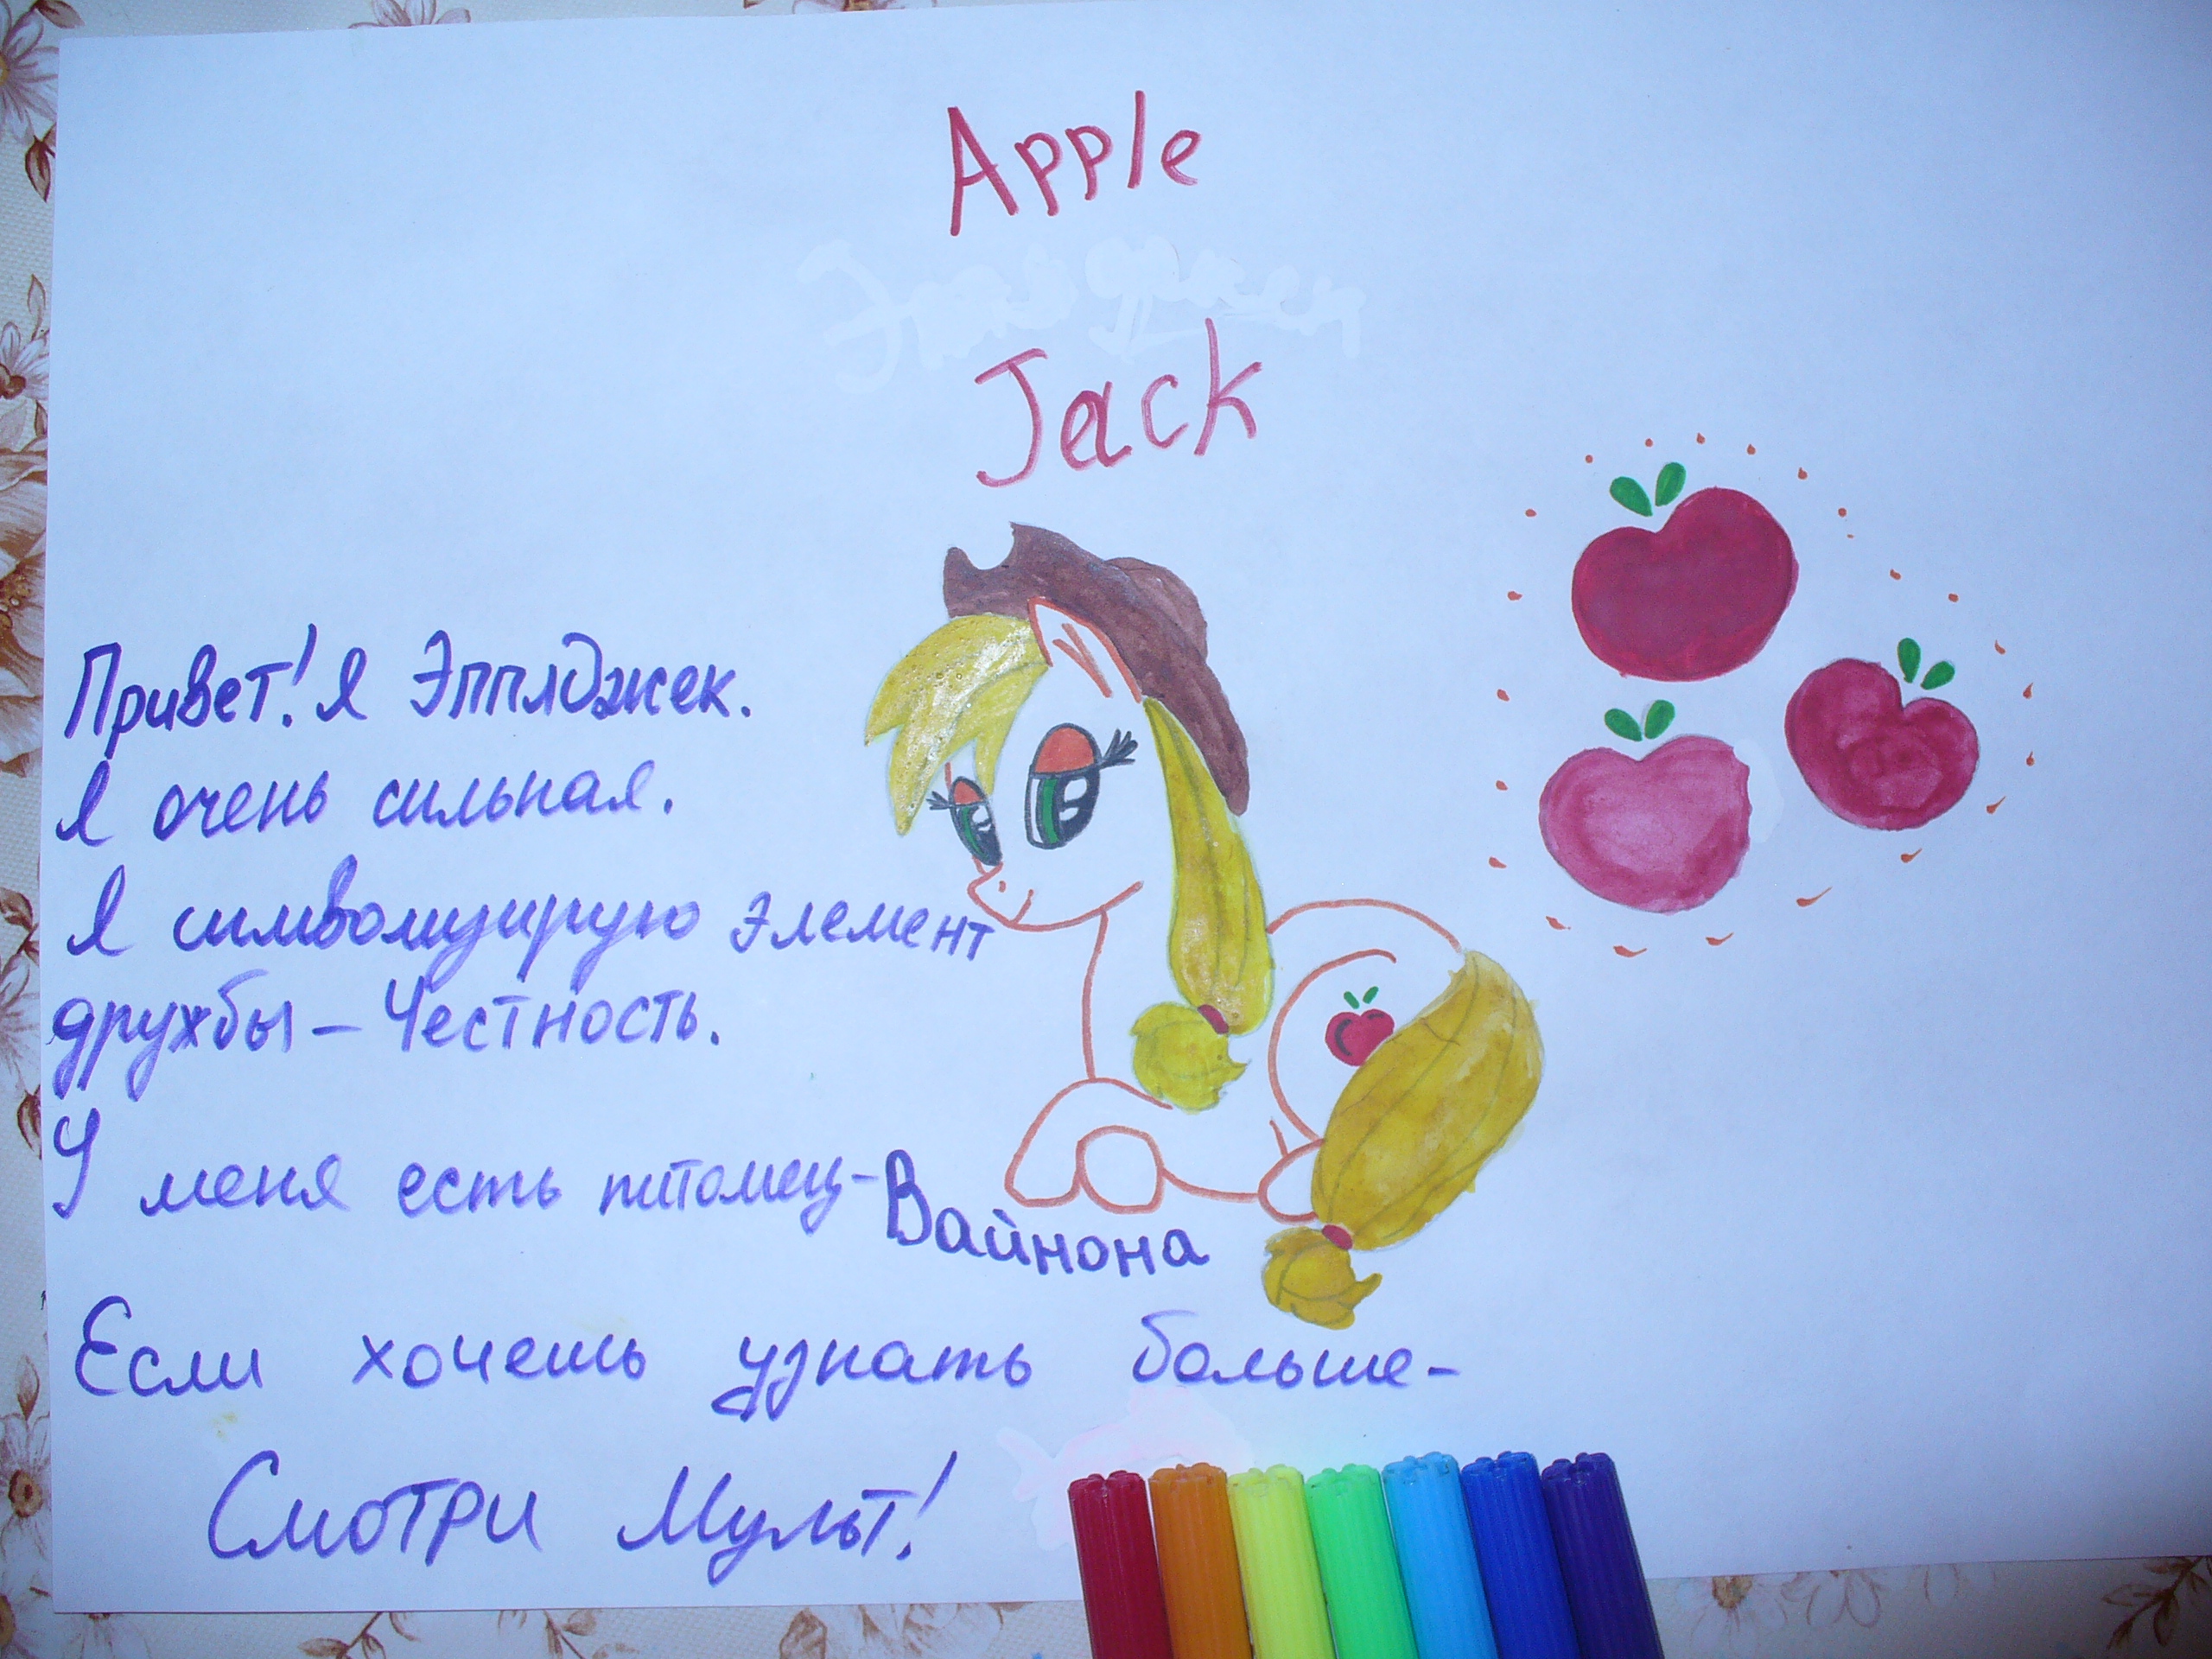 Apple
Jack
Привет! Я Эпплджек.
Я очень сильная.
Я символизирую элемент
дружбы – Честность.
У меня есть питомец – Вайнона
Если хочешь узнать больше –
Смотри Мульт!